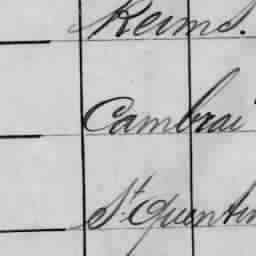 Reims.
Cambrai
St Quentin